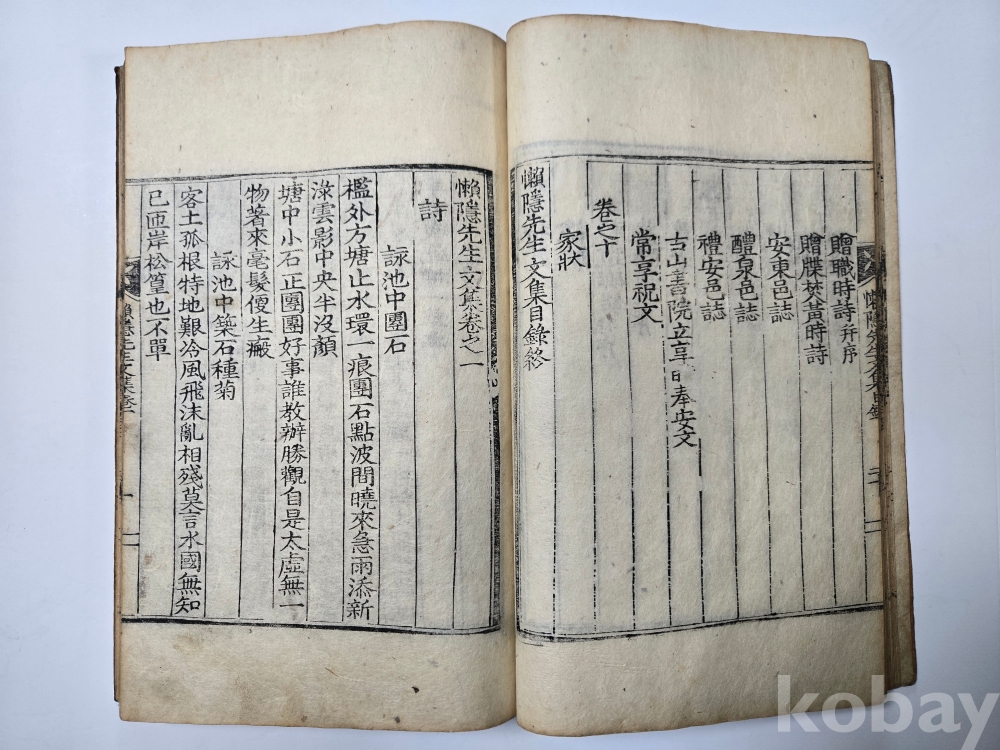 贈職時詩并序
贈牒焚黃時詩
安東邑誌
醴泉邑誌
禮安邑誌
古山書院立享日奉安文
常享祝文
卷之十
家狀
懶隱先生文集目錄終
懶隱先生文集卷之一
詩
詠池中團石
檻外方塘止水環一痕團石點波間曉來急雨添新
淥雲影中央半沒顏
塘中小石正團團好事誰教辦勝觀自是太虛無一
物著來毫髮便生瘢
詠池中築石種菊
客土孤根特地艱冷風飛沫亂相殘莫言水國無知
己匝岸松篁也不單
懶隱先生文集目錄
懶隱先生文集卷一
kobay